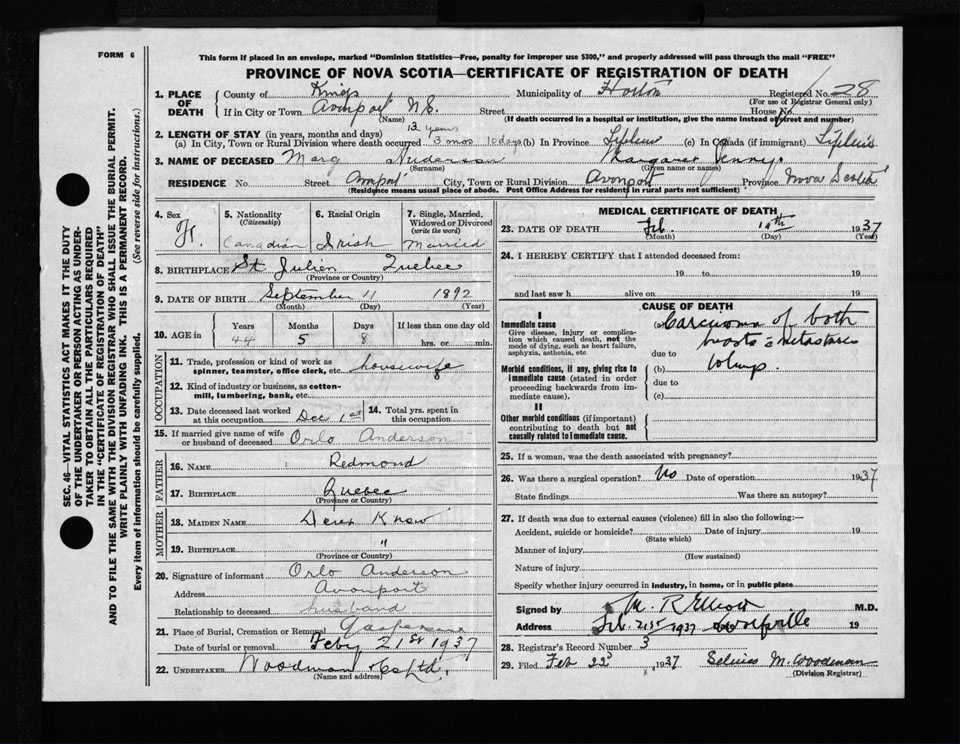 FORM 6
This form if placed in an envelope, marked "Dominion Statistics—Free, penalty for improper use $300," and properly addressed will pass through the mail "FREE"
PROVINCE OF NOVA SCOTIA—CERTIFICATE OF REGISTRATION OF DEATH
SEC. 46—VITAL STATISTICS ACT MAKES IT THE DUTY
OF THE UNDERTAKER OR PERSON ACTING AS UNDER-
TAKER TO OBTAIN ALL THE PARTICULARS REQUIRED
IN THE "CERTIFICATE OF REGISTRATION OF DEATH"
AND TO FILE THE SAME WITH THE DIVISION REGISTRAR WHO SHALL ISSUE THE BURIAL PERMIT.
WRITE PLAINLY WITH UNFADING INK. THIS IS A PERMANENT RECORD.
Every item of information should be carefully supplied. (See reverse side for instructions.)
1. PLACE OF DEATH County of Kings Municipality of Horton Registered No. 28
(For use of Registrar General only)
If in City or Town Avonport N.S. Street House No.
(Name) (If death occurred in a hospital or institution, give the name instead of street and number)
2. LENGTH OF STAY (in years, months and days) 13 years
(a) In City, Town or Rural Division where death occurred 3 mos 10 days (b) In Province (c) In Canada (if immigrant)
3. NAME OF DECEASED Marg Anderson Margaret Jenny
(Surname) (Given name or names)
RESIDENCE No. Street Avonport City, Town or Rural Division Avonport Province Nova Scotia
(Residence means usual place of abode. Post Office Address for residents in rural parts not sufficient)
4. Sex F.
5. Nationality (Citizenship) Canadian
6. Racial Origin Irish
7. Single, Married, Widowed or Divorced (write the word) Married
8. BIRTHPLACE St Julien Quebec
(Province or Country)
9. DATE OF BIRTH September 11 1892
(Month) (Day) (Year)
10. AGE in Years 44 Months 5 Days 8 If less than one day old hrs. or min.
OCCUPATION
11. Trade, profession or kind of work as spinner, teamster, office clerk, etc. housewife
12. Kind of industry or business, as cotton-mill, lumbering, bank, etc.
13. Date deceased last worked at this occupation Dec 1st 14. Total yrs. spent in this occupation
15. If married give name of wife or husband of deceased Orlo Anderson
FATHER
16. NAME Redmond
17. BIRTHPLACE Quebec
(Province or Country)
MOTHER
18. MAIDEN NAME Dont Know
19. BIRTHPLACE "
(Province or Country)
20. Signature of informant Orlo Anderson
Address Avonport
Relationship to deceased husband
21. Place of Burial, Cremation or Removal
Date of burial or removal Feby 21st 1937
22. UNDERTAKER Woodman
(Name and address)
MEDICAL CERTIFICATE OF DEATH
23. DATE OF DEATH Feb. 19th 1937
(Month) (Day) (Year)
24. I HEREBY CERTIFY that I attended deceased from:
19 to 19
and last saw h alive on 19
CAUSE OF DEATH
I
Immediate cause
Give disease, injury or complication which caused death, not the mode of dying, such as heart failure, asphyxia, asthenia, etc.
(a) Carcinoma of both
breasts c metastases
due to
Morbid conditions, if any, giving rise to immediate cause (stated in order proceeding backwards from immediate cause).
(b)
due to
(c)
II
Other morbid conditions (if important) contributing to death but not causally related to immediate cause.
25. If a woman, was the death associated with pregnancy?
26. Was there a surgical operation? No Date of operation 1937
State findings Was there an autopsy?
27. If death was due to external causes (violence) fill in also the following:—
Accident, suicide or homicide? Date of injury 19
(State which)
Manner of injury
(How sustained)
Nature of injury
Specify whether injury occurred in industry, in home, or in public place
Signed by M. R. Elliott M.D.
Address Feb. 21st 1937 Date Wolfville 19
28. Registrar's Record Number 3
29. Filed Feb 22 1937 M. Woodman
(Division Registrar)